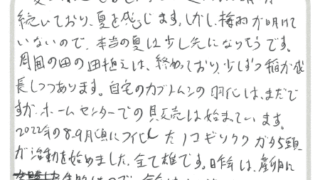 続いており、夏を感じます。しかし梅雨が明けて
いないので、本当の夏は少し先になりそうです。
周囲の田の田植えは、終わっており、少しずつ稲が成
長しつつあります。自宅のカブトムシの羽化は、まだで
すが、ホームセンターでの販売は始まっています。
2022年の8.9月頃に羽化したノコギリクワガタ数頭
が活動を始めました。全て雄です。昨年は、産卵に